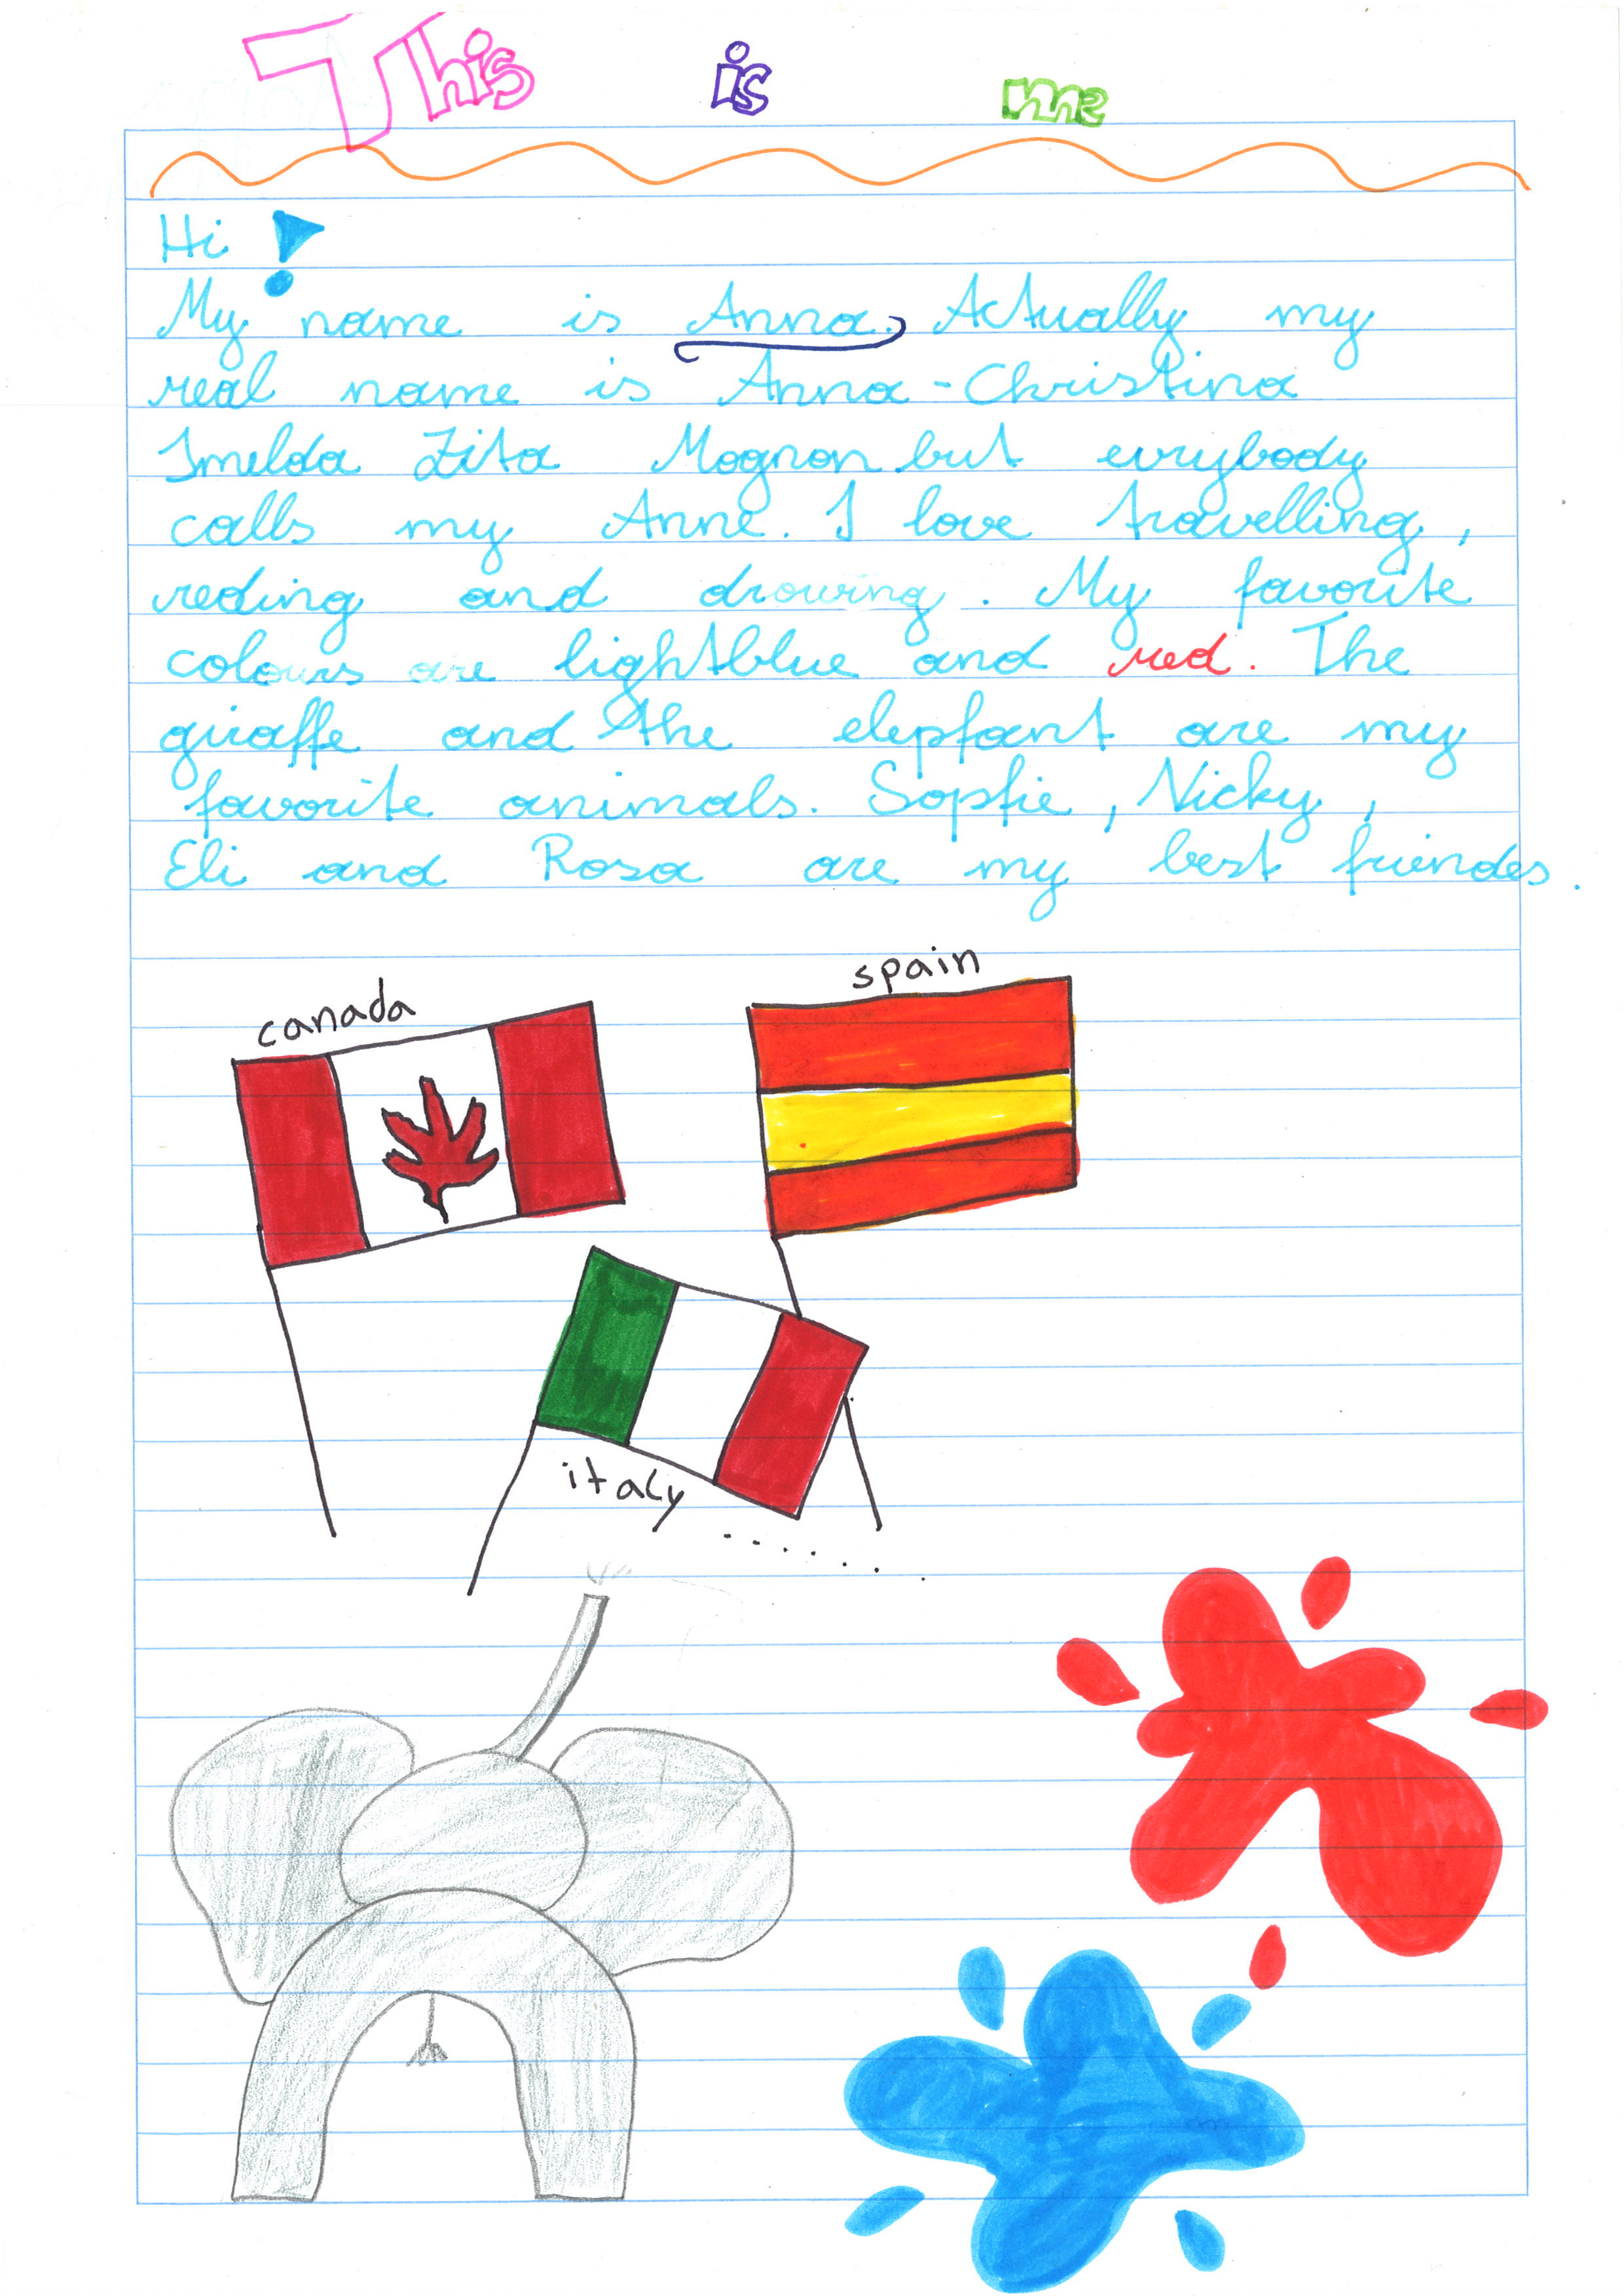 This is me
Hi !
My name is Anna. Actually my
real name is Anna-Christina
Imelda Zita Mognon but evrybody
calls my Anne. I love travelling,
reding and drowing. My favorite
colours are lightblue and red. The
giraffe and the elepfant are my
favorite animals. Sopfie, Nicky,
Eli and Rosa are my best friendes.
canada
spain
italy .......